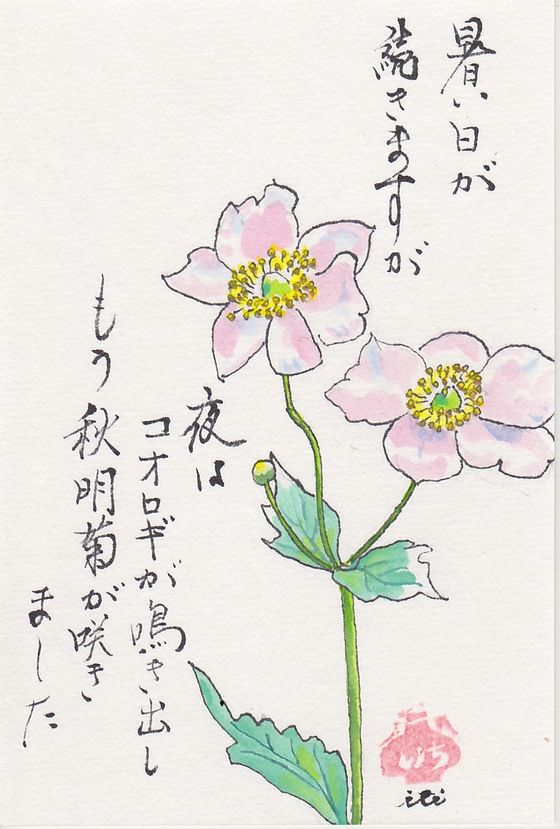 暑い日が
続きますが
夜は
コオロギが鳴き出し
もう秋明菊が咲き
ました
いち
iti